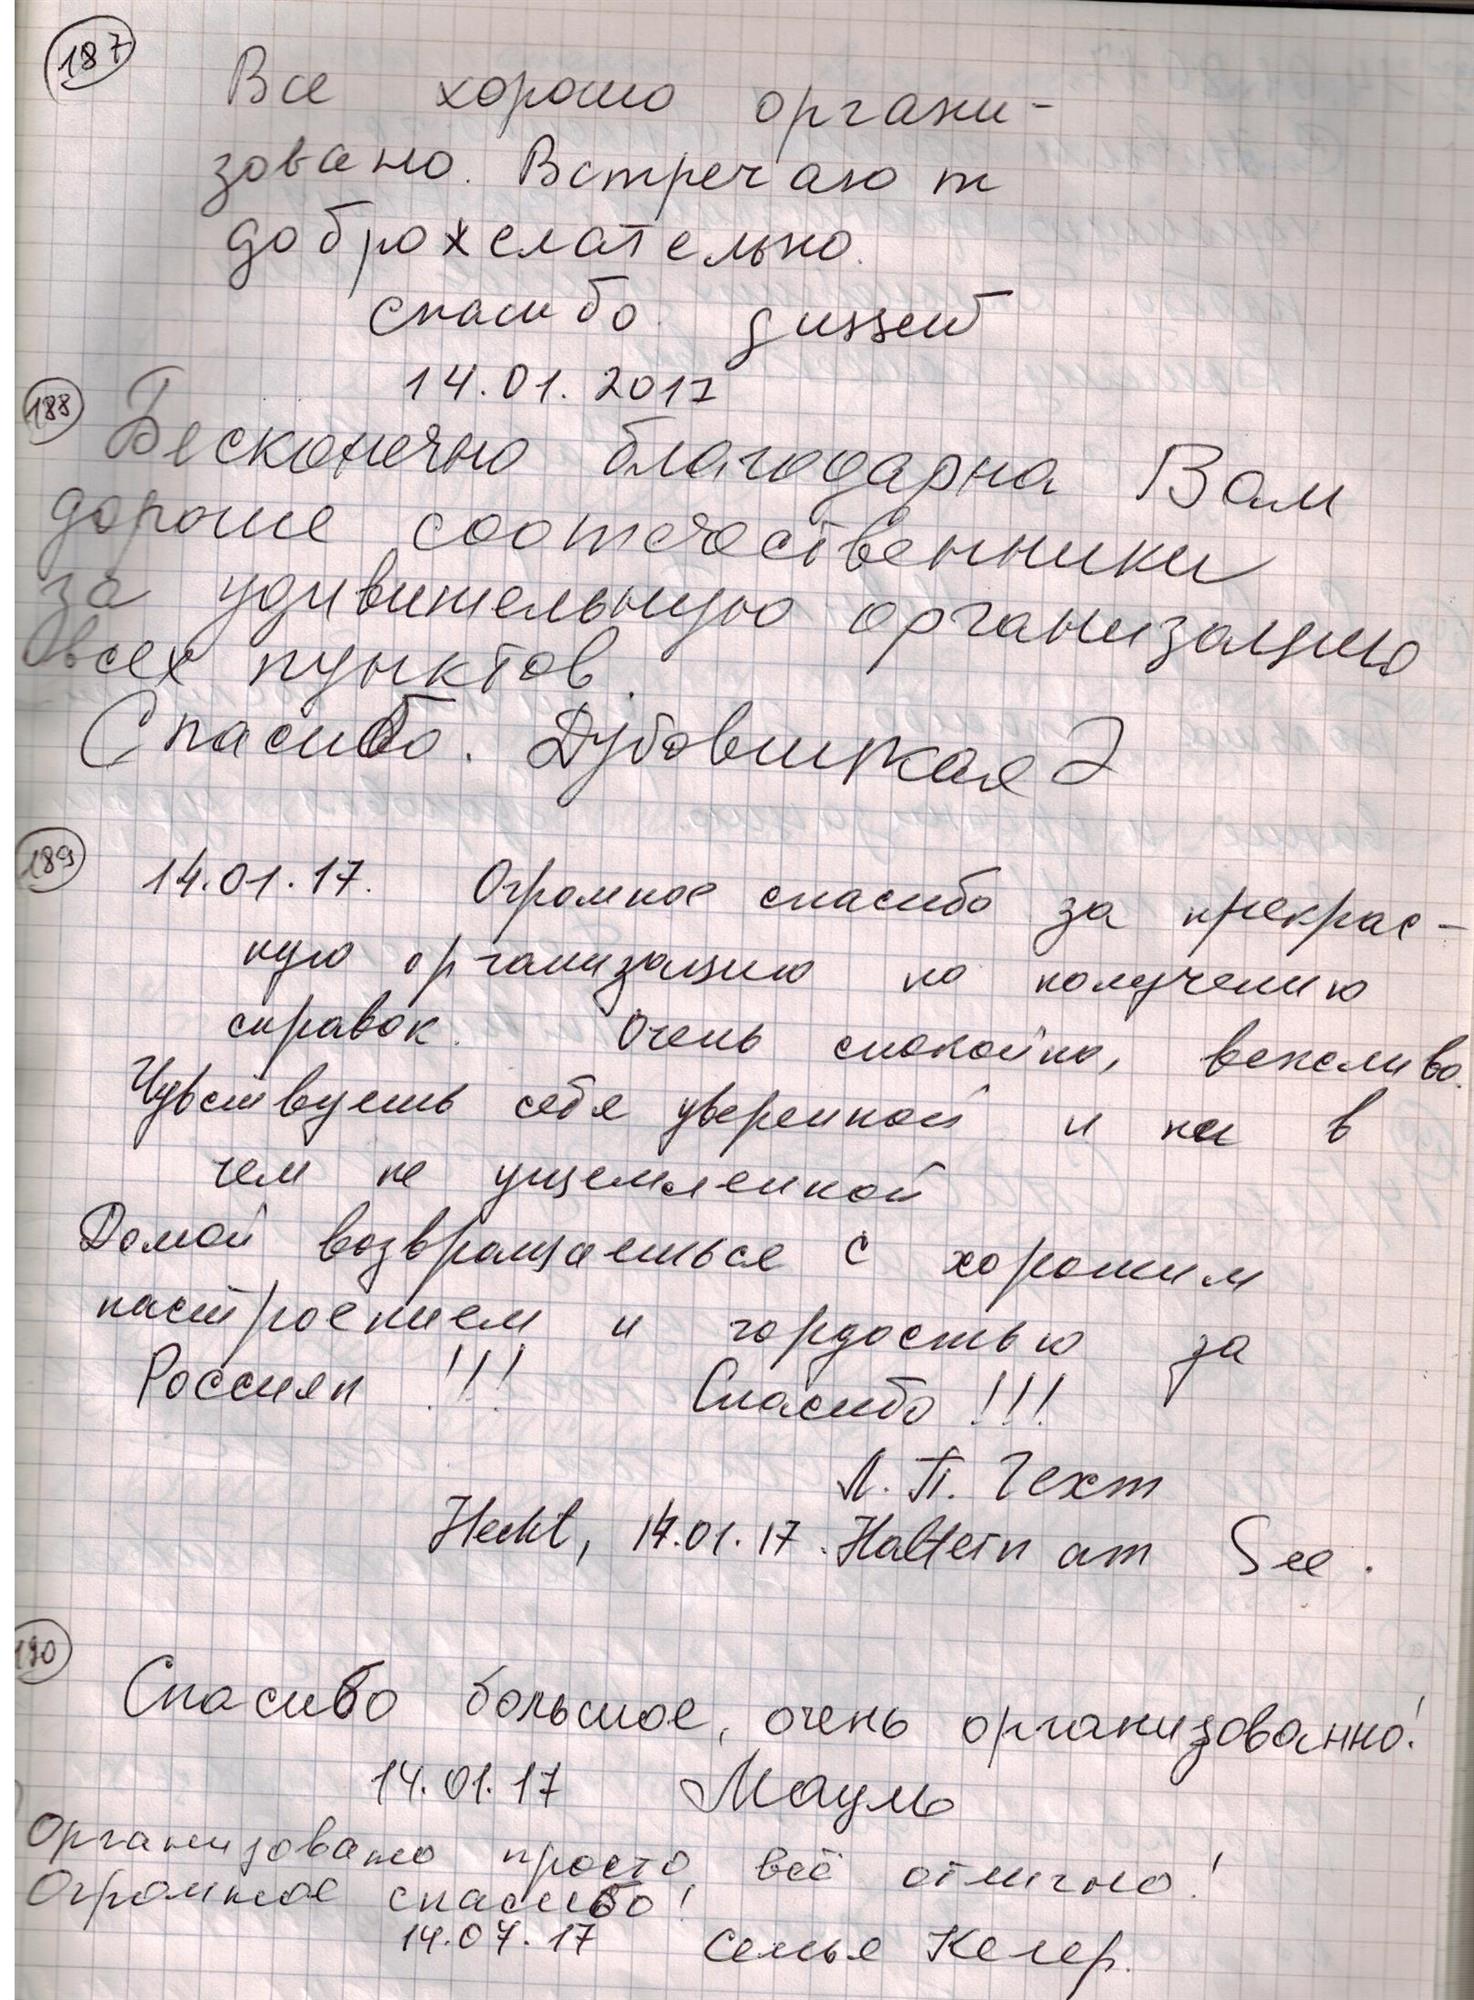 187
Все хорошо органи-
зовано. Встречают
доброжелательно.
спасибо.
14.01.2017
188
Бесконечно благодарна Вам
дорогие соотечественники
за удивительную организацию
всех пунктов.
Спасибо. Дубовицкая Э
189
14.01.17. Огромное спасибо за прекрас-
ную организацию по получению
справок. Очень спокойно, вежливо.
Чувствуешь себя уверенной и ни в
чем не ущемленной
Домой возвращаешься с хорошим
настроением и гордостью за
Россиян!!! Спасибо!!!
Л. П. Гехт
Hecht, 14.01.17. Haltern am See.
190
Спасибо большое, очень организованно!
14.01.17 Мауль
Организовано просто, всё отлично!
Огромное спасибо!
14.01.17 семья Келер.